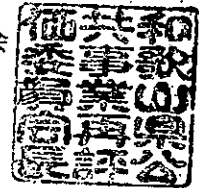 和歌山県公
共事業再評
価委員会長